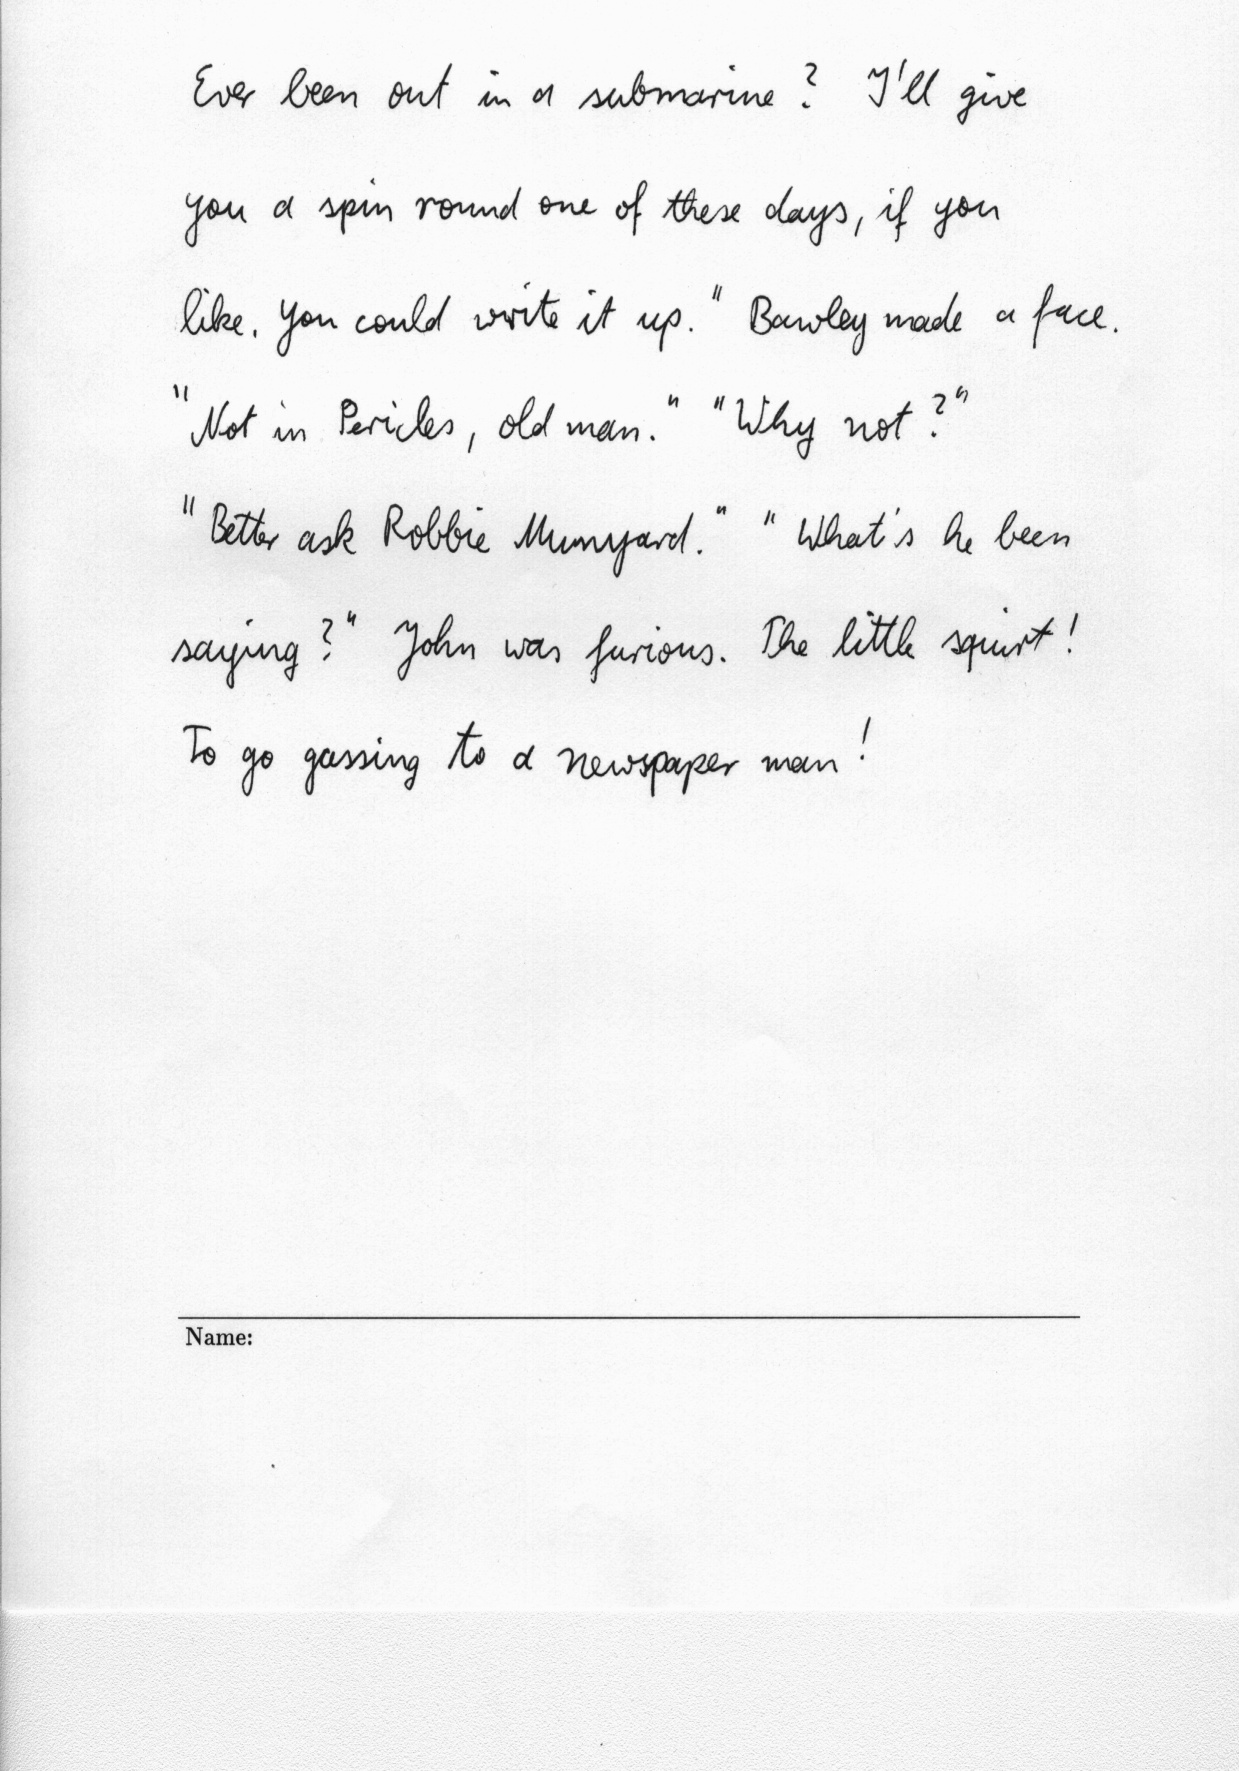 Ever been out in a submarine? I'll give
you a spin round one of these days, if you
like. You could write it up." Bawley made a face.
"Not in Pericles, old man." "Why not?"
"Better ask Robbie Munyard." "What's he been
saying?" John was furious. The little squirt!
To go gassing to a newspaper man!
Name: